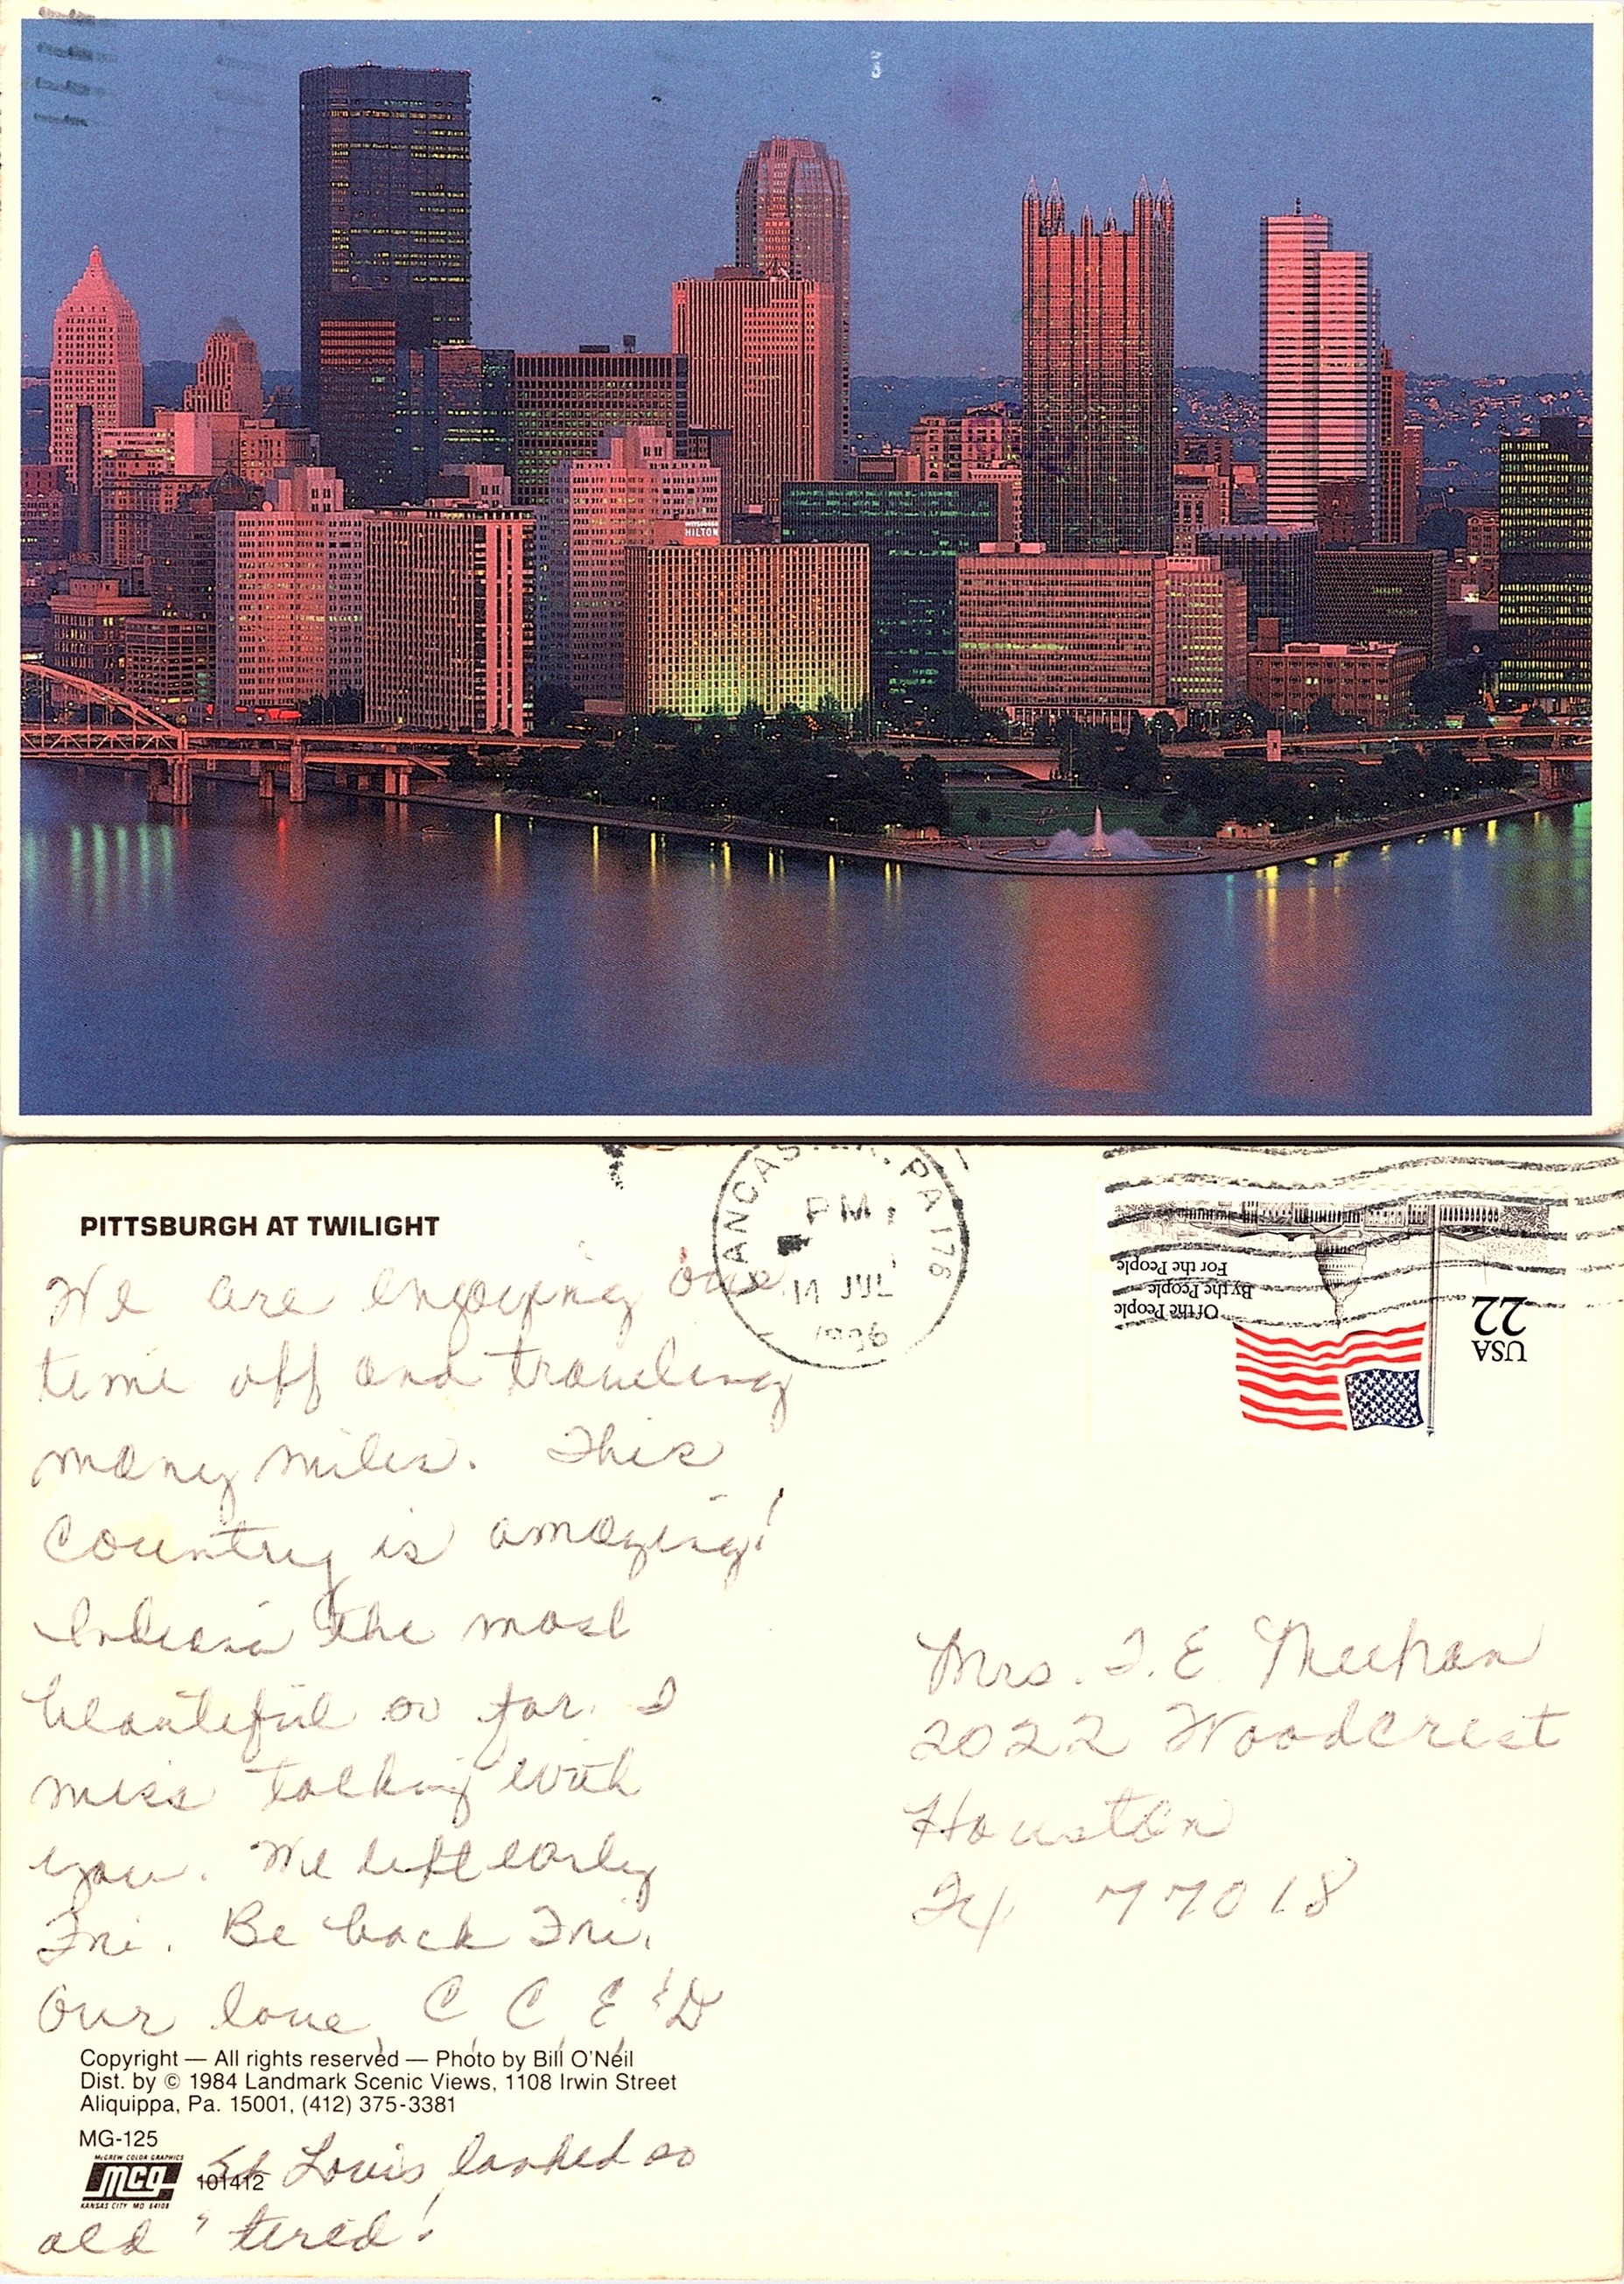 PITTSBURGH
HILTON
PITTSBURGH AT TWILIGHT
We are enjoying our
time off and traveling
many miles. This
country is amazing!
Indiana the most
beautiful so far. I
miss talking with
you. We left early
Fri. Be back Fri.
Our love, C C E & D
Copyright — All rights reserved — Photo by Bill O'Neil
Dist. by © 1984 Landmark Scenic Views, 1108 Irwin Street
Aliquippa, Pa. 15001, (412) 375-3381
MG-125
McGREW COLOR GRAPHICS
MCG
KANSAS CITY MO 64108
101412
St Louis looked so
old & tired!
LANCASTER, PA 176
PM
14 JUL
USA
22
Of the People
By the People
For the People
Mrs. T. E. Meehan
2022 Woodcrest
Houston
TX 77018